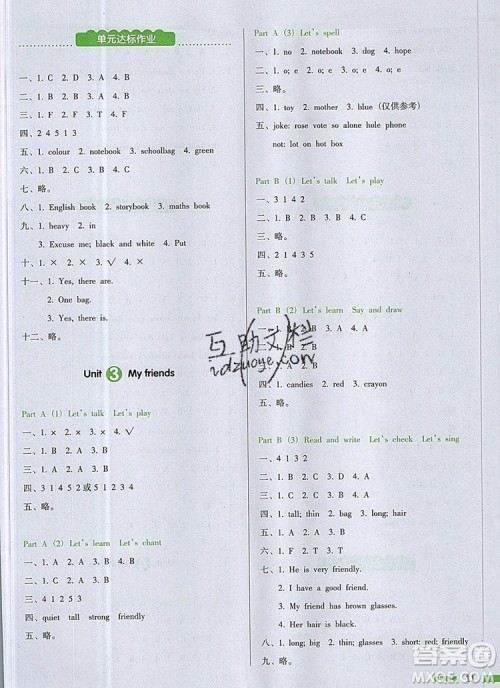 单元达标作业
一、1. C 2. D 3. A 4. B
二、1. B 2. A 3. A 4. B
三、1. C 2. B 3. A 4. B
四、2 4 5 1 3
五、1. colour 2. notebook 3. schoolbag 4. green
六、1. B 2. C 3. D 4. A
七、略。
八、1. English book 2. storybook 3. maths book
九、1. heavy
2. in
3. Excuse me; black and white 4. Put
十、1. × 2. × 3. √ 4. ×
十一、1. Yes, there are.
2. One bag.
3. Yes, there is.
十二、略。
Unit 3 My friends
Part A (1) Let's talk Let's play
一、1. × 2. × 3. × 4. √
二、1. A 2. B 3. A
三、1. C 2. D 3. B 4. A
四、3 1 4 5 2 或 5 1 4 3 2
五、略。
Part A (2) Let's learn Let's chant
一、1. B 2. A 3. A 4. B
二、1. B 2. C 3. A 4. D
三、4 2 1 3 5
四、quiet tall strong friendly
五、略。
Part A (3) Let's spell
一、1. no 2. notebook 3. dog 4. box
二、1. o; e 2. o; e 3. o; e
三、略。
四、1. toy 2. mother 3. blue（仅供参考）
五、joke: rose vote so alone hole phone
not: lot on hot box
Part B (1) Let's talk Let's play
一、3 1 4 2
二、1. B 2. B 3. B 4. A
三、1. C 2. B 3. A
四、2 1 4 3 5
五、略。
Part B (2) Let's learn Say and draw
互助文栏
zdzuoye.com
四、1. candies 2. red 3. crayon
五、略。
Part B (3) Read and write Let's check Let's sing
一、4 1 3 2
二、1. B 2. C 3. D 4. A
三、1. A 2. B 3. A
四、1. tall; thin 2. big 3. long; hair
五、1. B 2. A 3. A
六、1. F 2. T 3. T
七、1. He is very friendly.
2. I have a good friend.
3. My friend has brown glasses.
4. Her hair is black.
八、1. long; big 2. thin; glasses 3. short; red; friendly
九、略。